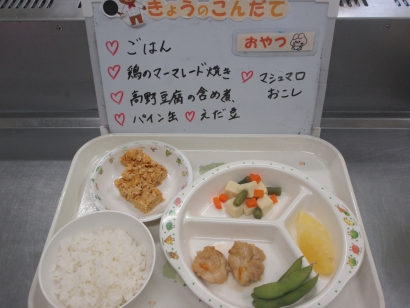 きょうのこんだて
♡ ごはん
♡ 鶏のマーマレード焼き
♡ 高野豆腐の含め煮
♡ パイン缶 ♡ えだ豆
おやつ
♡ マシュマロ
おこし